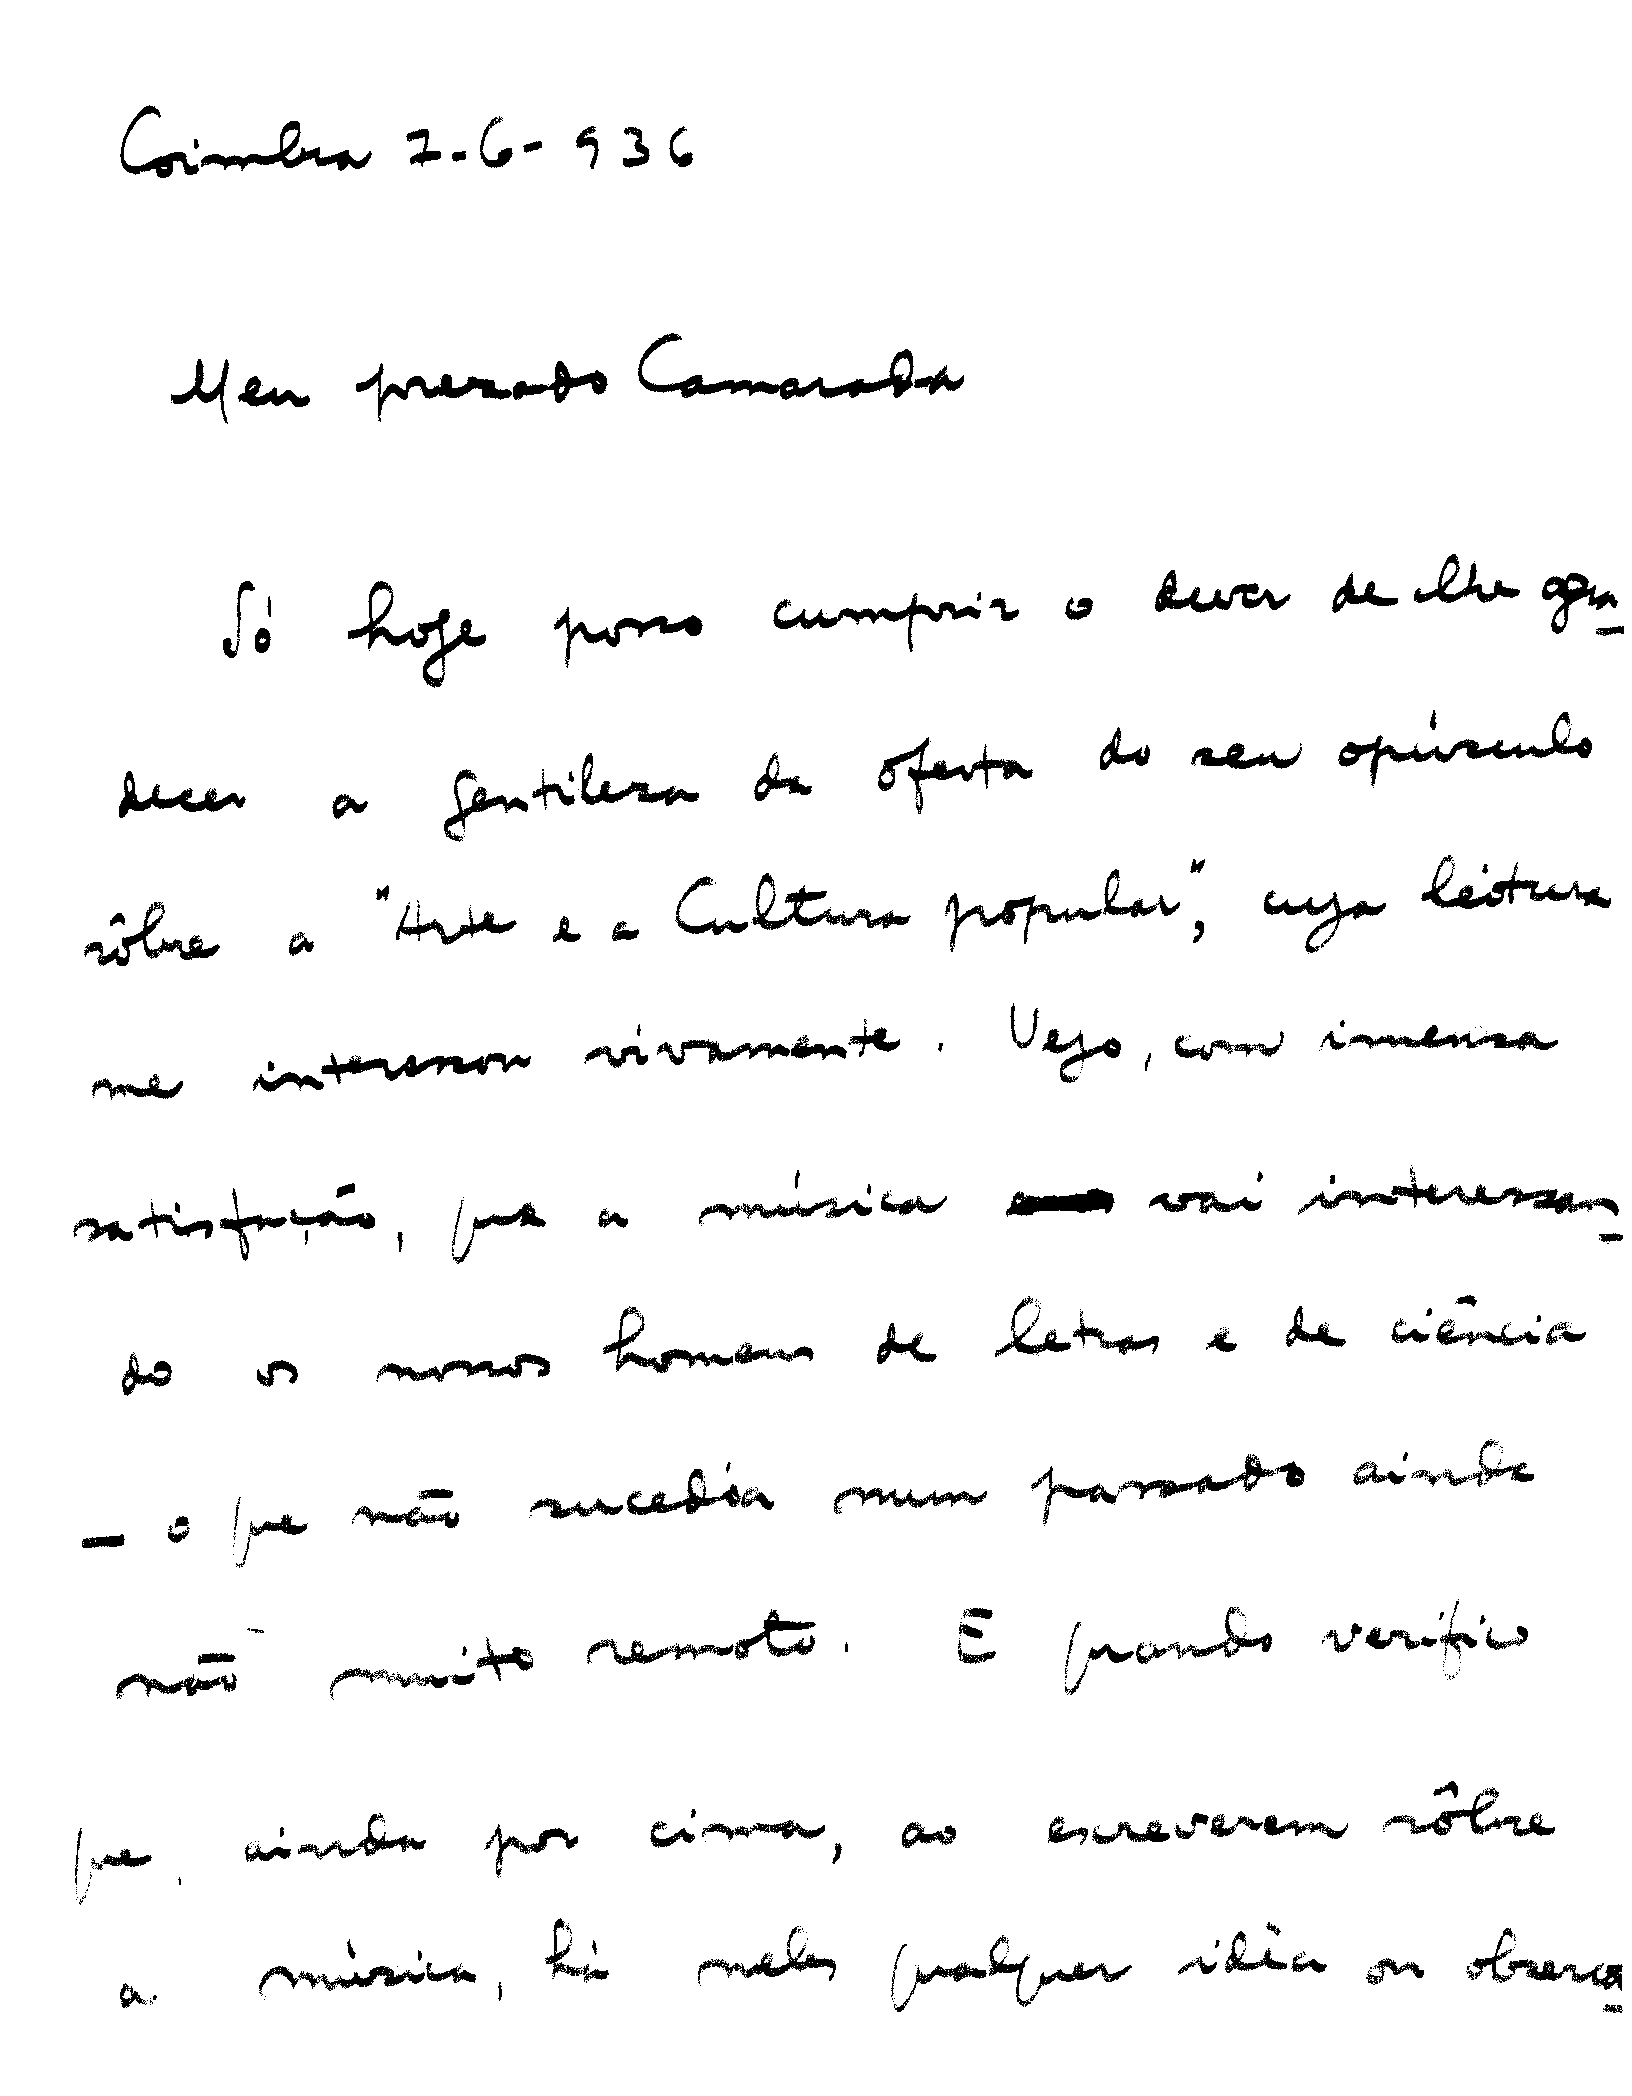 Coimbra 7-6-936
Meu prezado Camarada
Só hoje posso cumprir o dever de lhe agra-
decer a gentileza da oferta do seu opúsculo
sôbre a "Arte e a Cultura popular", cuja leitura
me interessou vivamente. Vejo, com imensa
satisfação, que a música vai interessan-
do os nossos homens de letras e de ciência
- o que não sucedia num passado ainda
não muito remoto. E quando verifico
que, ainda por cima, ao escreverem sôbre
a música, há neles qualquer idêa ou observa-